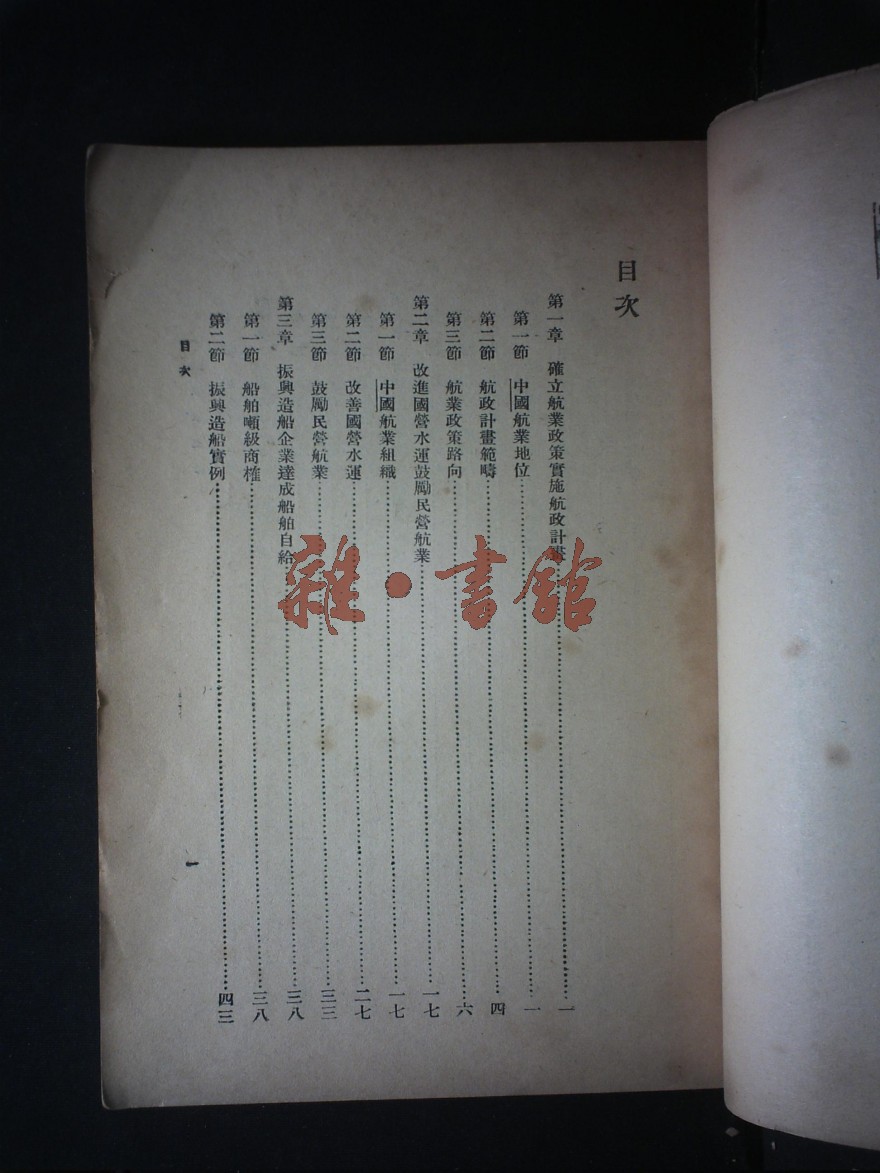 目次
第一章 確立航業政策實施航政計畫……一
第一節 中國航業地位……一
第二節 航政計畫範疇……四
第三節 航業政策路向……六
第二章 改進國營水運鼓勵民營航業……一七
第一節 中國航業組織……一七
第二節 改善國營水運……二七
第三節 鼓勵民營航業……三三
第三章 振興造船企業達成船舶自給……三八
第一節 船舶噸級商榷……三八
第二節 振興造船實例……四三
目次 一
雜·書館